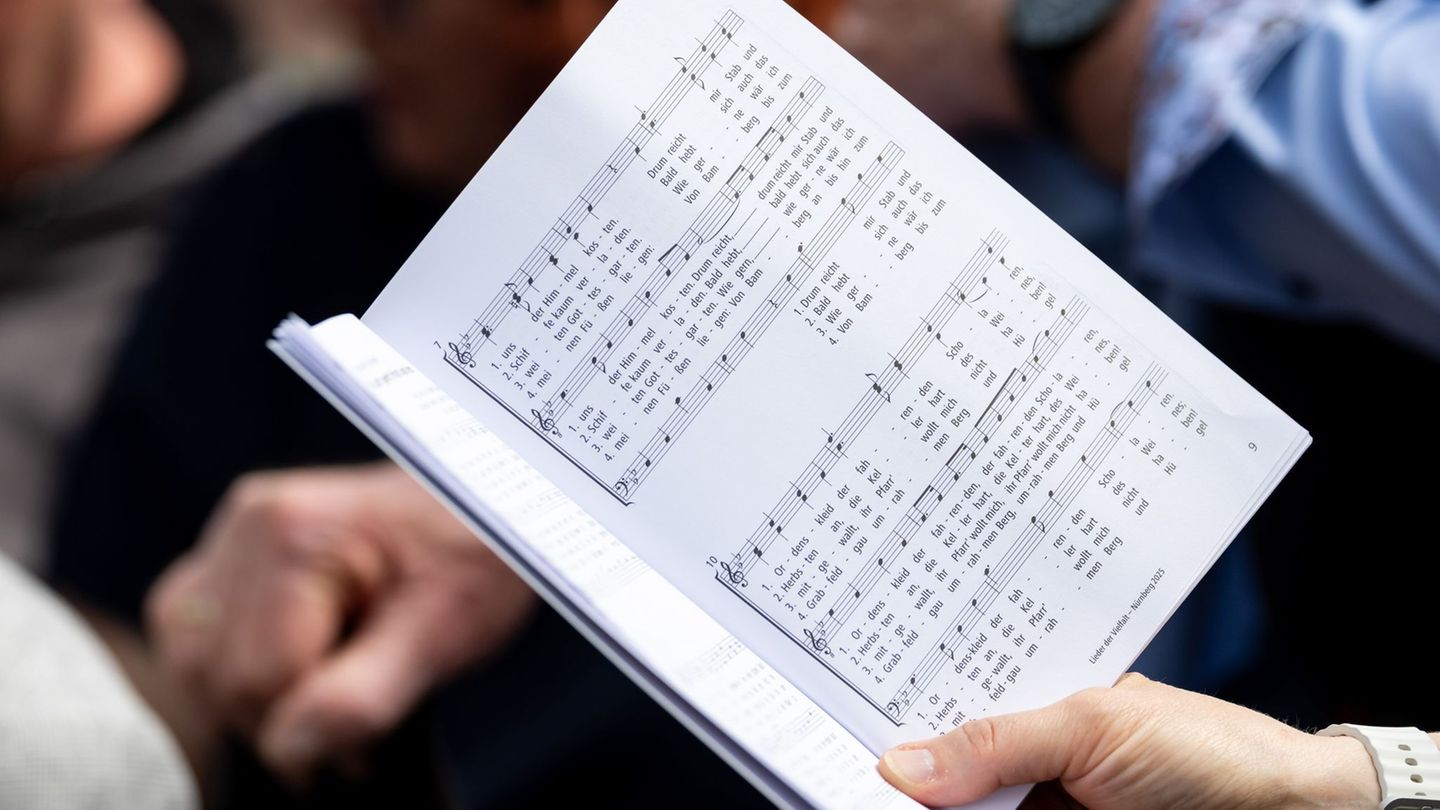 7
1. uns - der Him - mel kos - ten. Drum reicht mir Stab und
2. Schif - fe kaum ver - la - den. Bald hebt sich auch das
3. wei - ten Got - tes gar - ten. Wie ger - ne wär ich
4. mei - nen Fü - ßen lie - gen: Von Bam - berg bis zum
1. uns der Him - mel kos - ten. Drum reicht, drum reicht mir Stab und
2. Schif - fe kaum ver - la - den. Bald hebt, bald hebt sich auch das
3. wei - ten Got - tes gar - ten. Wie gern, wie ger - ne wär ich
4. mei - nen Fü - ßen lie - gen: Von Bam - berg an bis hin zum
1. Drum reicht mir Stab und
2. Bald hebt sich auch das
3. Wie ger - ne wär ich
4. Von Bam - berg bis zum
10
1. Or - dens - kleid der fah - ren den Scho - la - ren,
2. Herbs - ten an, die Kel - ler hart des Wei - nes,
3. mit ge - wallt, ihr Pfarr' wollt mich nicht ha - ben!
4. Grab - feld gau um - rah - men Berg und Hü - gel
1. Or - dens - kleid der fah - ren - den, der fah - ren - den Scho - la - ren,
2. Herbs - ten an, die Kel - ler hart, die Kel - ter hart, des Wei - nes,
3. mit ge - wallt, ihr Pfarr' wollt mich, ihr Pfarr' wollt mich nicht ha - ben!
4. Grab - feld - gau um - rah - men Berg, um - rah - men Berg und Hü - gel
1. Or - dens - kleid der fah - ren den Scho - la - ren.
2. Herbs - ten an, die Kel - ler hart des Wei - nes;
3. mit ge - wallt, ihr Pfarr' - wollt mich nicht ha - ben!
feld - gau um - rah - men Berg und Hü - gel
Lieder der Vielfalt – Nürnberg 2025
9